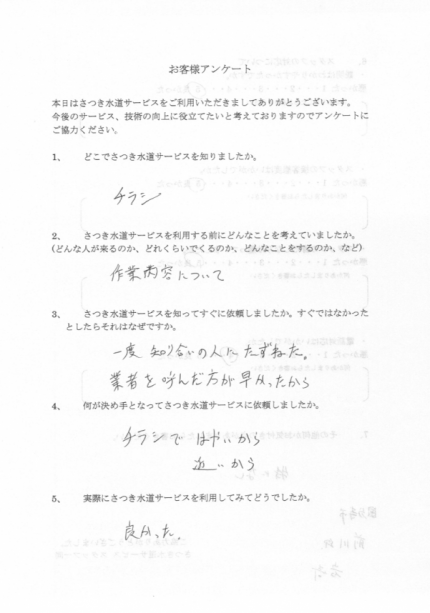 お客様アンケート
本日はさつき水道サービスをご利用いただきましてありがとうございます。
今後のサービス、技術の向上に役立てたいと考えておりますのでアンケートに
ご協力ください。
1、 どこでさつき水道サービスを知りましたか。
チラシ
2、 さつき水道サービスを利用する前にどんなことを考えていましたか。
(どんな人が来るのか、どれくらいでくるのか、どんなことをするのか、など)
作業内容について
3、 さつき水道サービスを知ってすぐに依頼しましたか。すぐではなかった
としたらそれはなぜですか。
一度 知り合いの人にたずねた。
業者を呼んだ方が早かったから
4、 何が決め手となってさつき水道サービスに依頼しましたか。
チラシで はやいから
近いから
5、 実際にさつき水道サービスを利用してみてどうでしたか。
良かった。